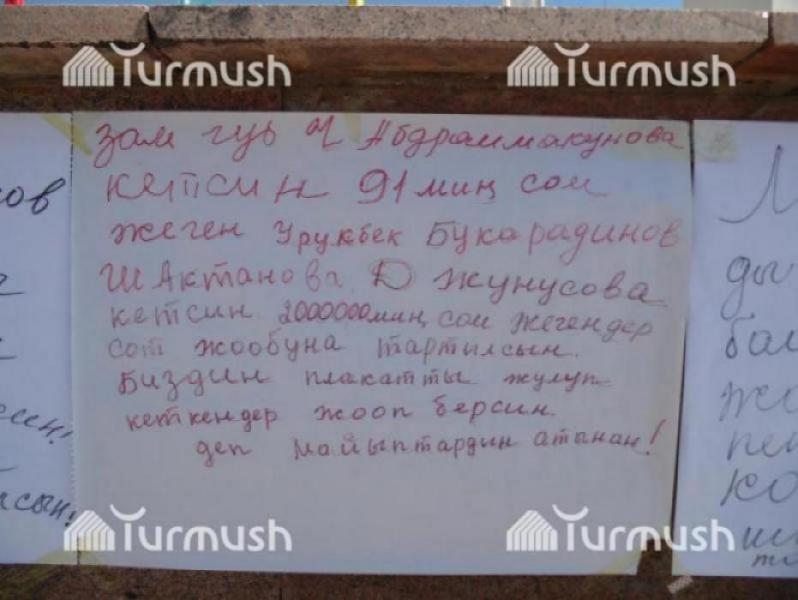 Turmush Turmush
зам губ Ч Абдраимакунова
кетсин 91 миң сом
жеген Урукбек Букарадинов
Ш Актанова Д Жунусова
кетсин 2000000миң сом жегендер
сот жообуна тартылсын.
Биздин плакатты жулуп
кеткендер жооп берсин.
деп майыптардин атынан!
ов
син!
йсын!
ды
ба
жо
ко
Turmush Turmush